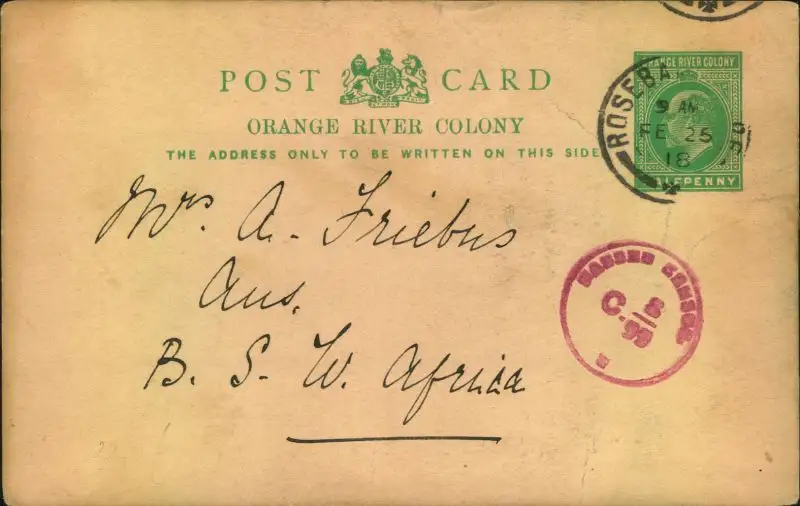 POST CARD
ORANGE RIVER COLONY
THE ADDRESS ONLY TO BE WRITTEN ON THIS SIDE
ORANGE RIVER COLONY
HALFPENNY
9 AM
FE 25
18
Mrs A. Friebus
Aus.
B. S. W. Africa
PASSED CENSOR
C.